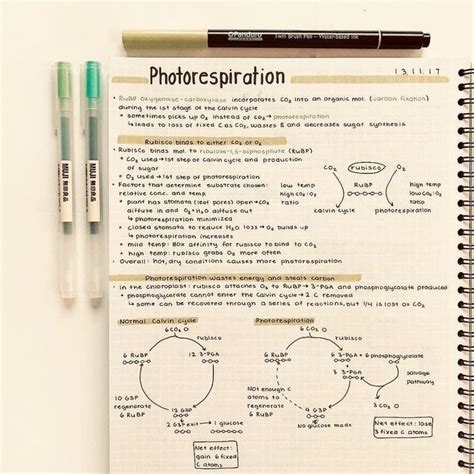 Panduro Twin Brush Pen - Water-based ink
Photorespiration
13.11.17
• RuBP oxygenase-carboxylase incorporates CO₂ into an organic mol. (carbon fixation)
during the 1st stage of the Calvin Cycle
• sometimes picks up O₂ instead of CO₂ → photorespiration
↳ leads to loss of fixed C as CO₂, wastes E and decreases sugar synthesis
Rubisco binds to either CO₂ or O₂
• Rubisco binds mol. to ribulose-1,5-bisphosphate (RuBP)
• CO₂ used → 1st step of Calvin cycle and production
of sugar
• O₂ used → 1st step of photorespiration
• Factors that determine substrate chosen:
relative conc. and temp.
• plant has stomata (leaf pores) open → CO₂
diffuse in and O₂+H₂O diffuse out
↳ photorespiration minimized
• closed stomata to reduce H₂O loss → O₂ builds up
↳ photorespiration increases
• mild temp: 80x affinity for rubisco to bind to CO₂
• high temp: rubisco grabs O₂ more often
• Overall: hot, dry conditions causes more photorespiration
CO₂ rubisco O₂
low temp RuBP high temp
high CO₂:O₂ low CO₂:O₂
ratio ratio
calvin cycle photorespiration
Photorespiration wastes energy and steals carbon
• In the chloroplast: rubisco attaches O₂ to RuBP → 3-PGA and phosphoglycolate produced
• phosphoglycolate cannot enter the Calvin cycle → 2 C removed
↳ some can be recovered through a series of reactions, but 1/4 is lost as CO₂
Normal Calvin cycle
6 CO₂
rubisco
6 RuBP 12 3-PGA
10 G3P
regenerate
6 RuBP
12 G3P
2 G3P exit → 1 glucose
Net effect:
gain 6 fixed
C atoms
Photorespiration
6 O₂
rubisco
6 RuBP 6 3-PGA + 6 phosphoglycolate
3 3-PGA
salvage
pathway
3 CO₂
Not enough C
atoms to
regenerate
6 RuBP
9 G3P
No glucose made
Net effect: lose
3 fixed C atoms
MUJI
無印良品
MUJI
無印良品